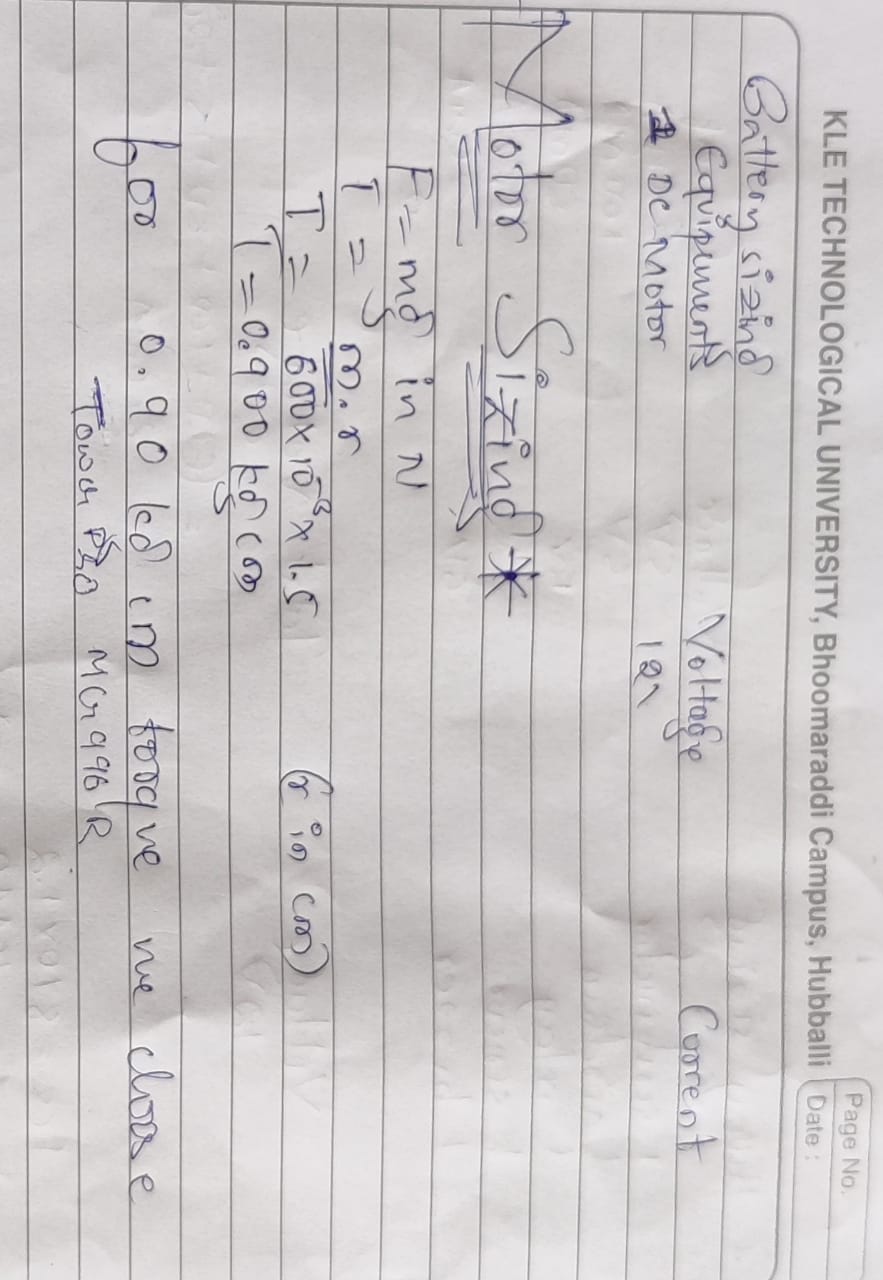 Page No.
KLE TECHNOLOGICAL UNIVERSITY, Bhoomaraddi Campus, Hubballi
Date :
Battery sizing
Equipments Voltage Current
1 DC Motor 12V
Motor Sizing *
F = mg in N
T = m.r
T = 600 x 10⁻³ x 1.5 (r in cm)
T = 0.900 kg cm
for 0.90 kg cm torque we choose
Tower Pro MG996R